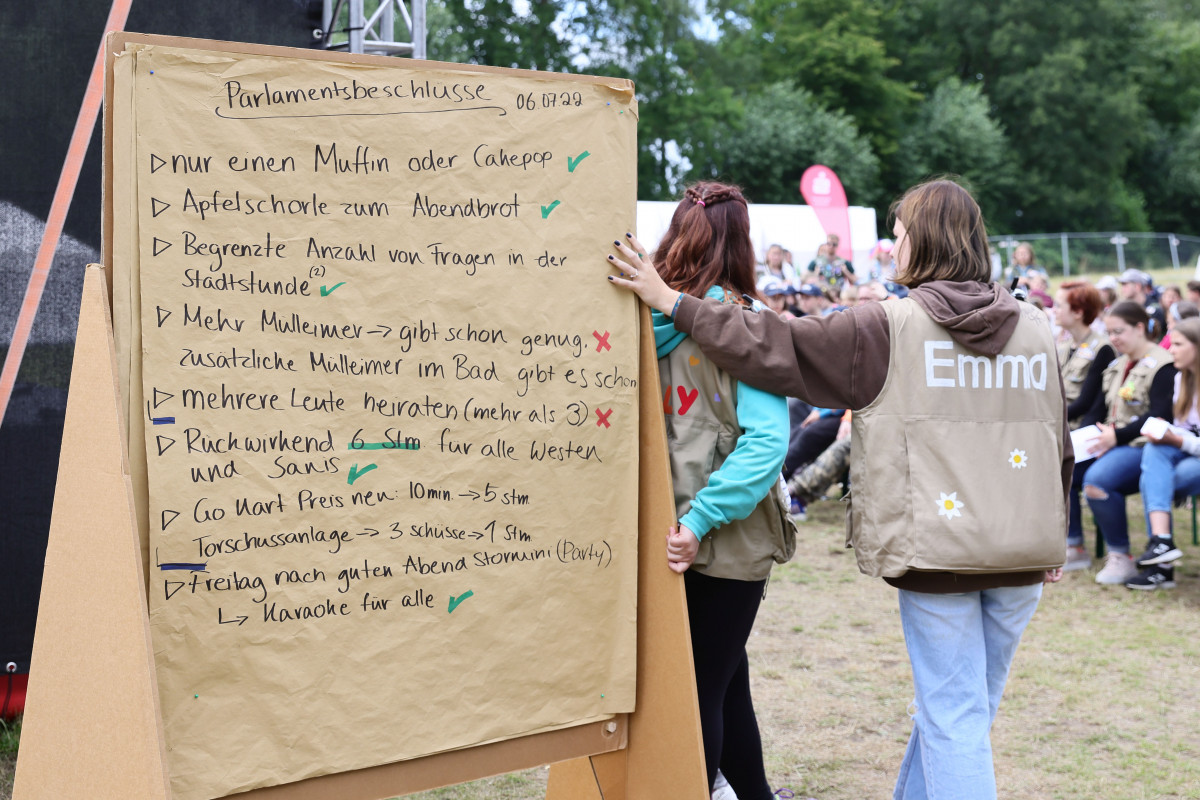 Parlamentsbeschlüsse 06.07.22
▷ nur einen Muffin oder Cakepop ✓
▷ Apfelschorle zum Abendbrot ✓
▷ Begrenzte Anzahl von Fragen in der
Stadtstunde (2) ✓
▷ Mehr Mülleimer → gibt schon genug. ✗
zusätzliche Mülleimer im Bad gibt es schon
▷ mehrere Leute heiraten (mehr als 3) ✗
▷ Rückwirkend 6 Stm für alle Westen
und Sanis ✓
▷ Go Kart Preis neu: 10min → 5 stm
Torschussanlage → 3 schüsse → 1 Stm
▷ Freitag nach guten Abend Stormini (Party)
↳ Karaoke für alle ✓
LY
Emma